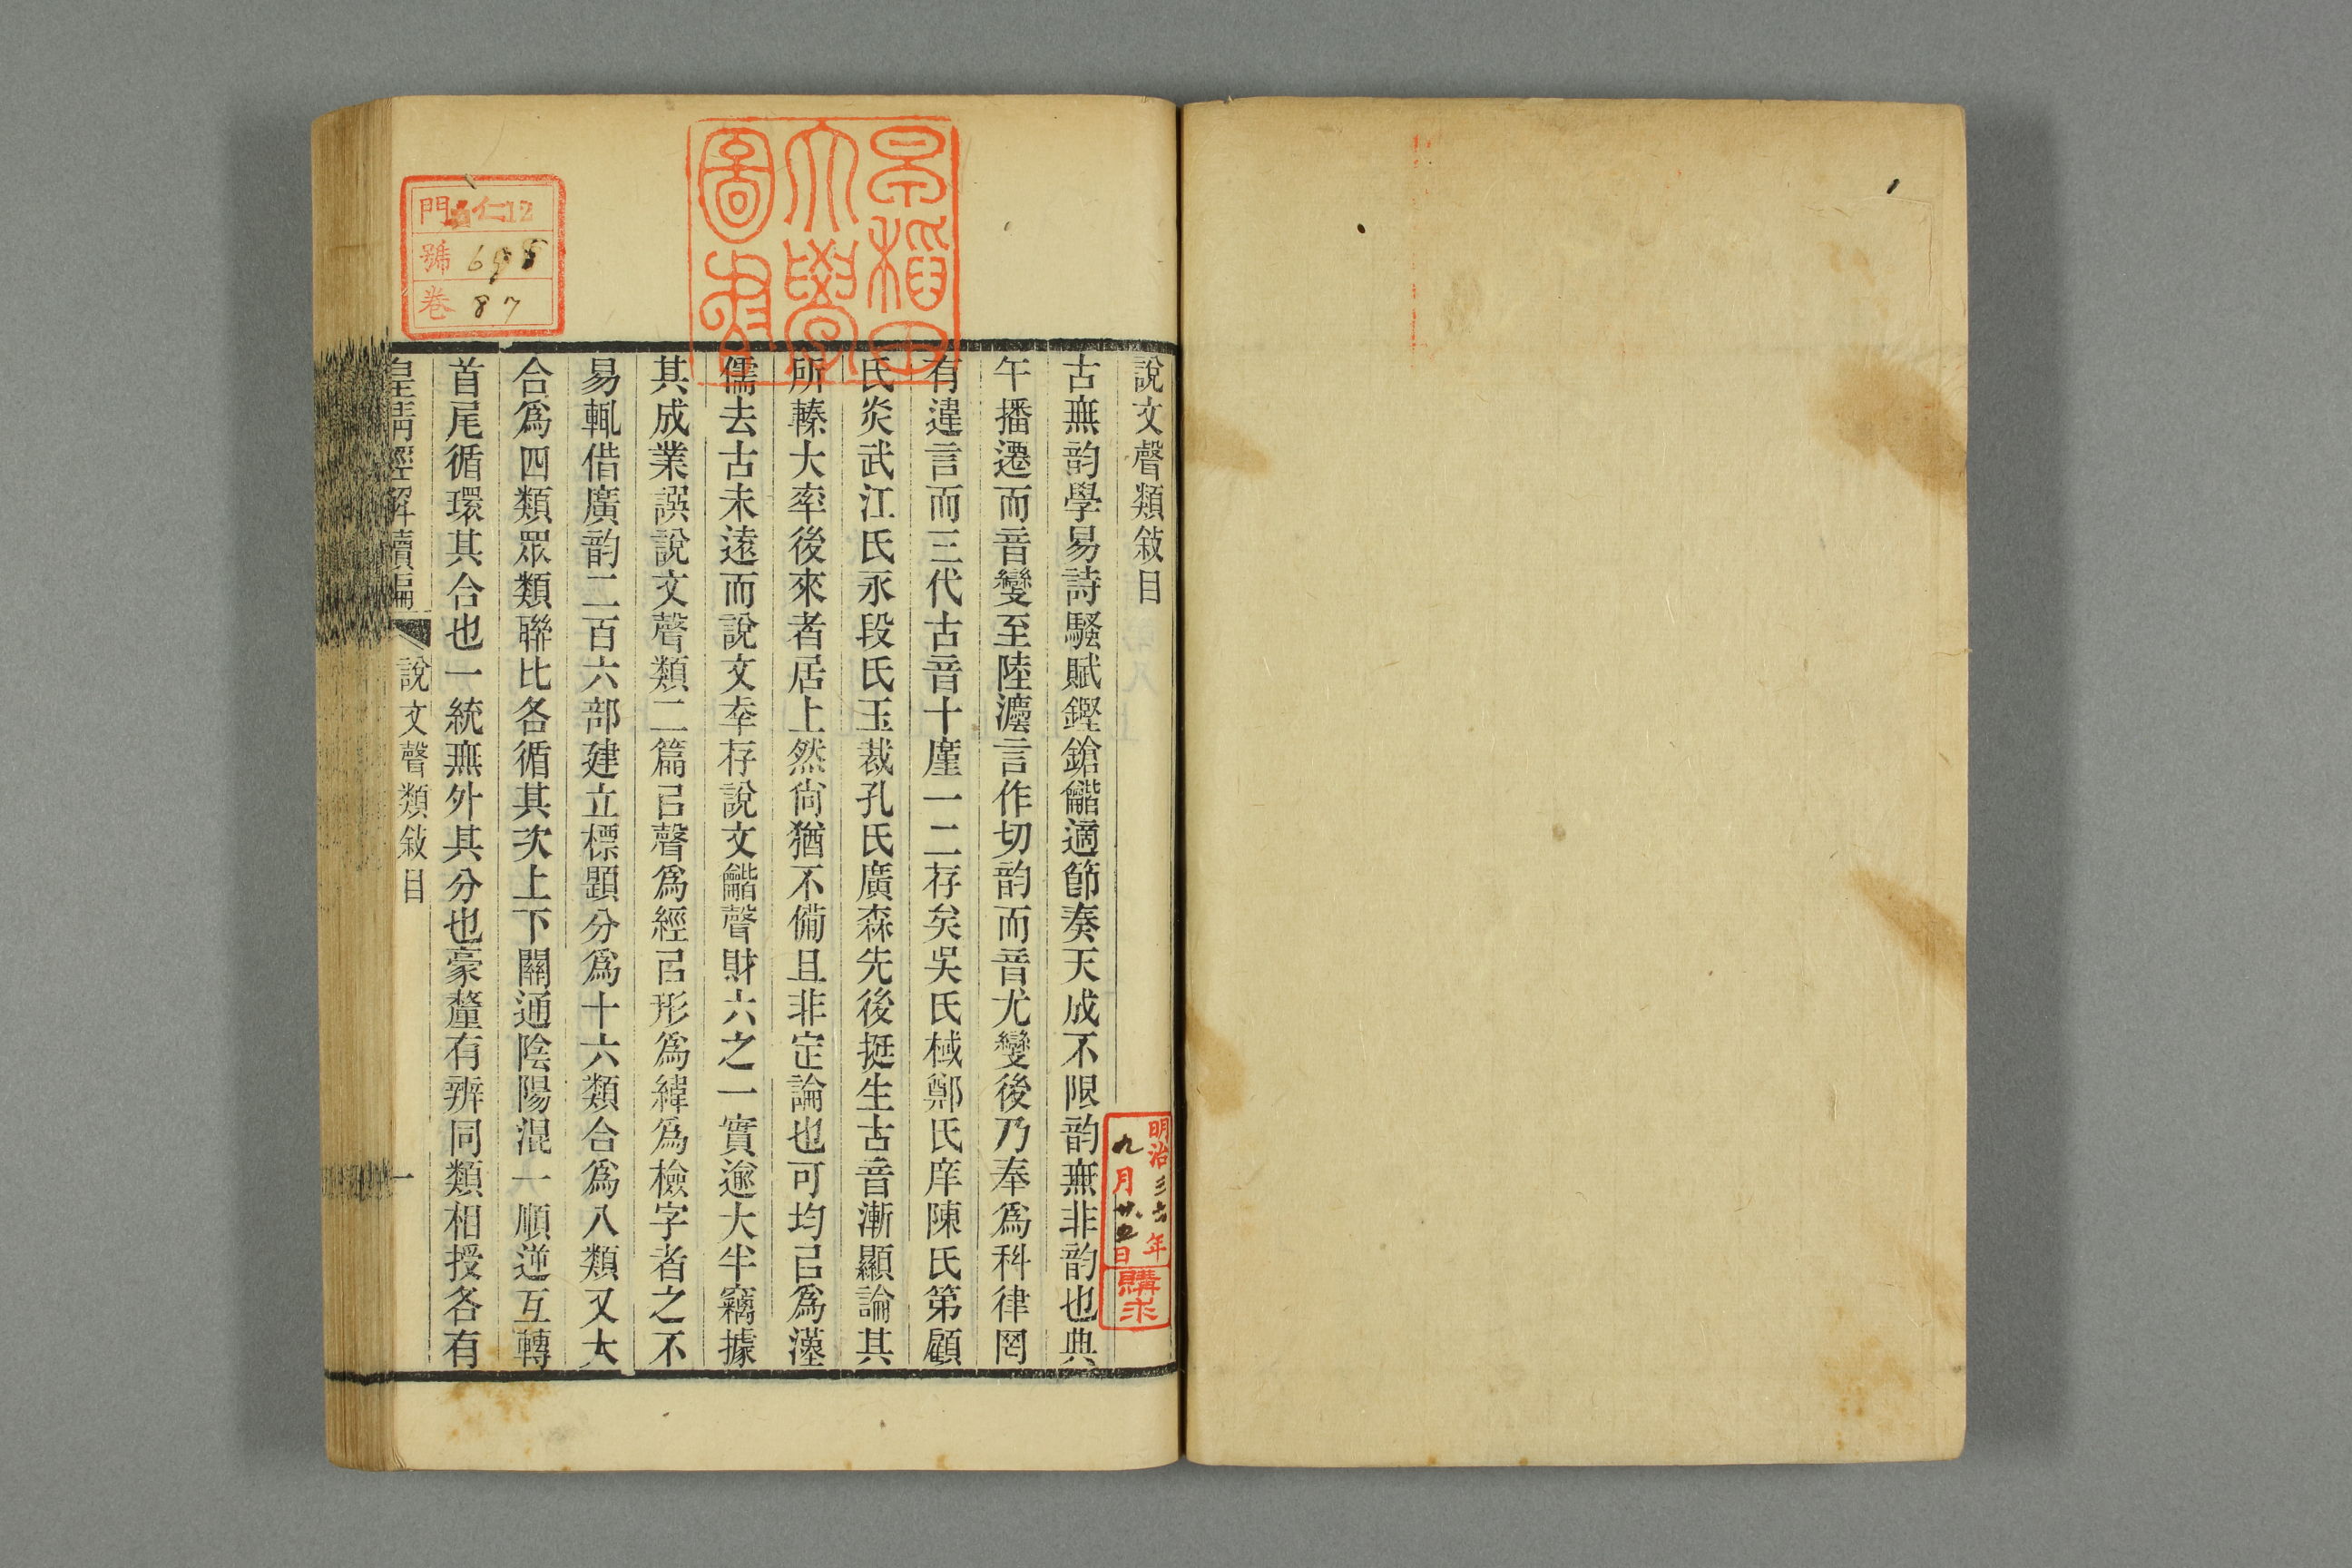 說文聲類敍目
古無韵學易詩騷賦鏗鎗龤適節奏天成不限韵無非韵也典
午播遷而音變至陸灋言作切韵而音尤變後乃奉爲科律罔
有違言而三代古音十廑一二存矣吳氏棫鄭氏庠陳氏第顧
氏炎武江氏永段氏玉裁孔氏廣森先後挺生古音漸顯論其
所臻大率後來者居上然尙猶不備且非定論也可均㠯爲漢
儒去古未遠而說文夲存說文龤聲財六之一實逾大半竊據
其成業譔說文聲類二篇㠯聲爲經㠯形爲緯爲檢字者之不
易輒借廣韵二百六部建立標題分爲十六類合爲八類又大
合爲四類眾類聯比各循其次上下關通陰陽混一順逆互轉
首尾循環其合也一統無外其分也豪釐有辨同類相授各有
皇清經解續編
說文聲類敍目
一
早稻田
大學
圖書
門 仁12
號 695
卷 87
明治三六年
九月廿五日
購求